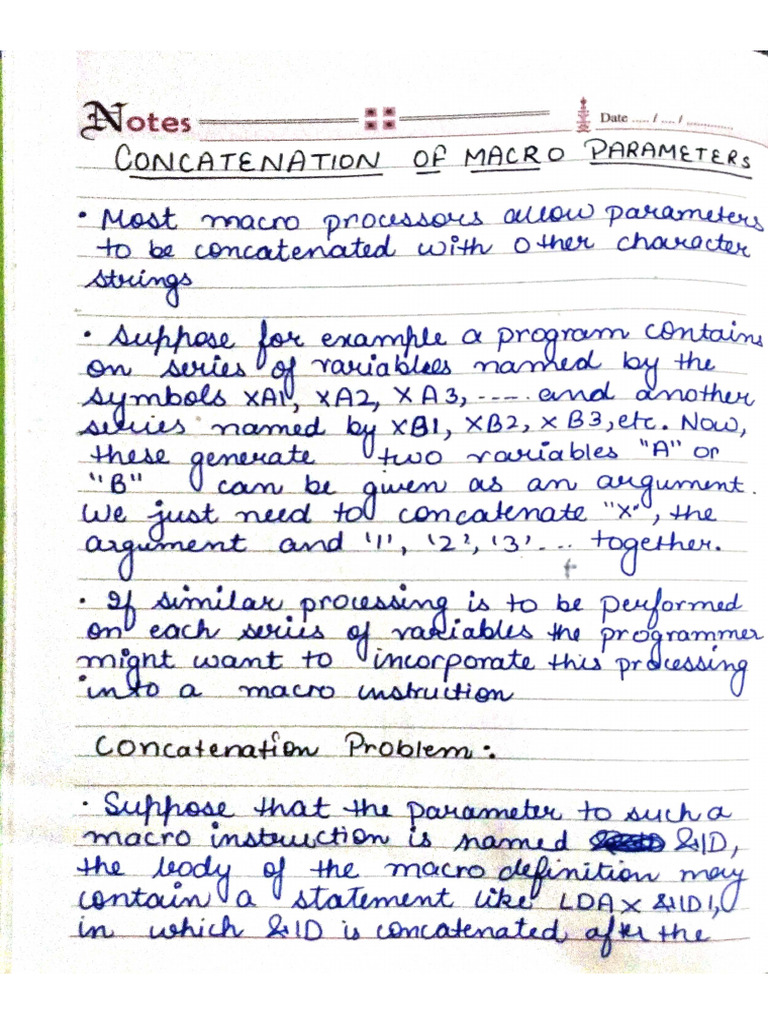 Notes
Date ..... / .... / ..............
CONCATENATION OF MACRO PARAMETERS
• Most macro processors allow parameters
to be concatenated with other character
strings
• Suppose for example a program contains
on series of variables named by the
symbols XA1, XA2, XA3, ---- and another
series named by XB1, XB2, XB3, etc. Now,
these generate two variables "A" or
"B" can be given as an argument.
We just need to concatenate "X", the
argument and '1', '2', '3' ... together.
• If similar processing is to be performed
on each series of variables the programmer
might want to incorporate this processing
into a macro instruction
Concatenation Problem:
• Suppose that the parameter to such a
macro instruction is named &ID,
the body of the macro definition may
contain a statement like LDA X &ID1,
in which &ID is concatenated after the